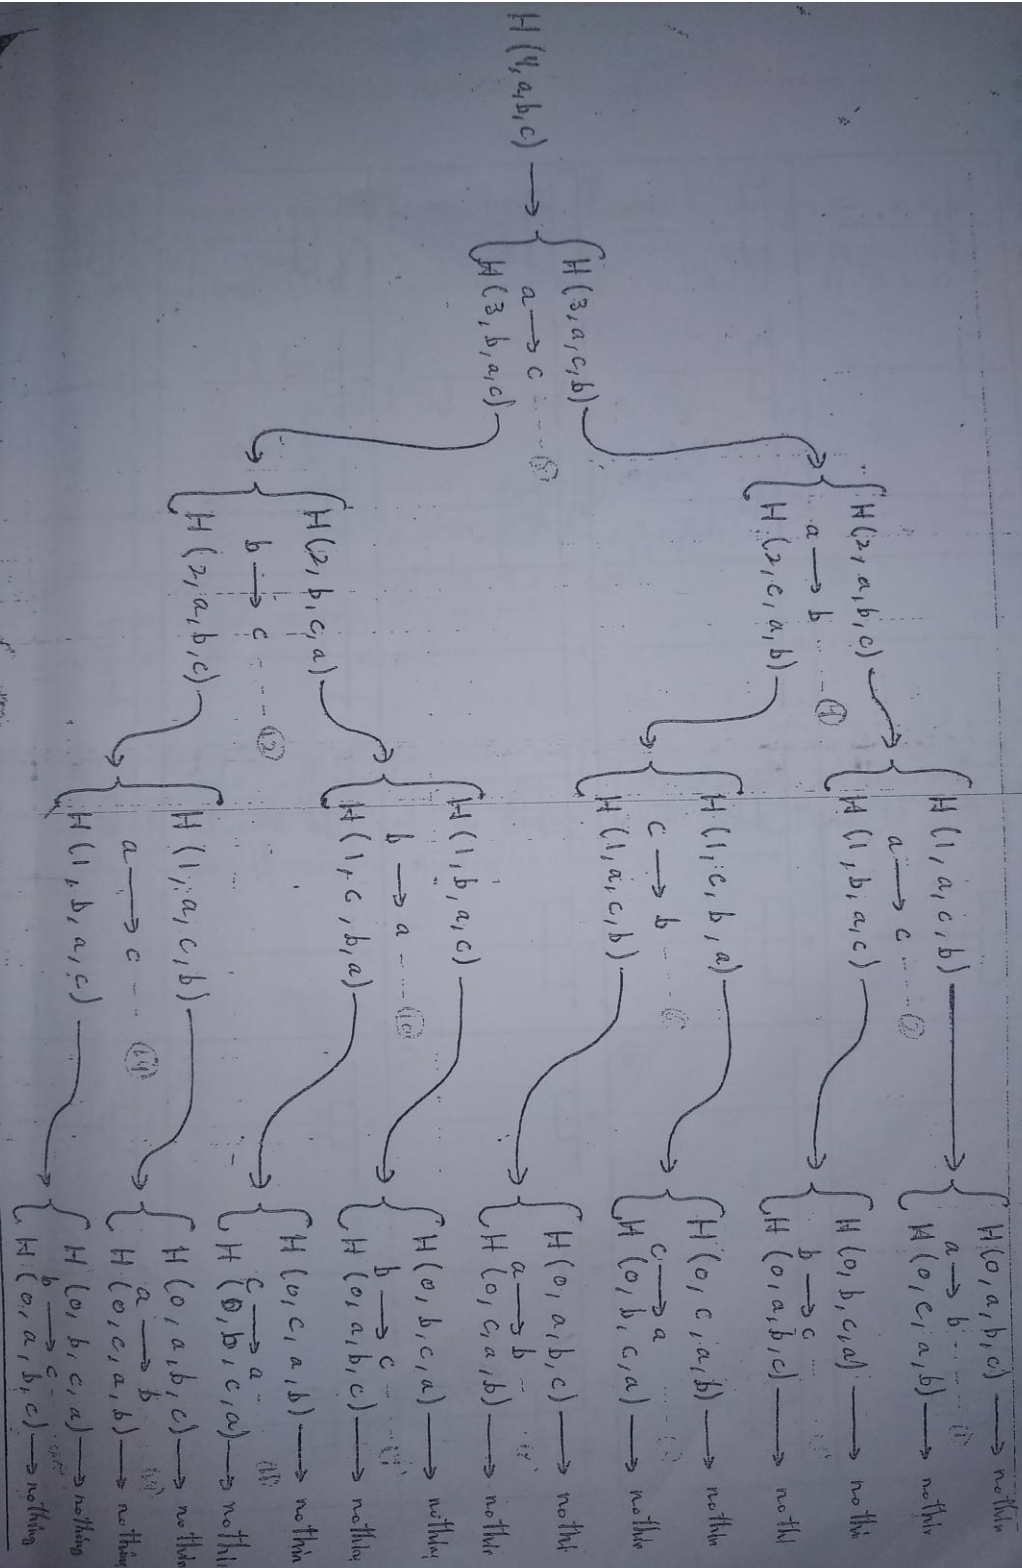 H(4,a,b,c) →
H(3,a,c,b)
a → c
H(3,b,a,c)
H(2,a,b,c)
a → b ④
H(2,c,a,b)
H(2,b,c,a)
b → c ⑫
H(2,a,b,c)
H(1,a,c,b)
a → c ②
H(1,b,a,c)
H(1,c,b,a)
c → b
H(1,a,c,b)
H(1,b,a,c)
b → a ⑩
H(1,c,b,a)
H(1,a,c,b)
a → c ⑭
H(1,b,a,c)
H(0,a,b,c) → nothin
a → b
H(0,c,a,b) → nothin
H(0,b,c,a) → nothi
b → c
H(0,a,b,c) → nothi
H(0,c,a,b) → nothin
c → a
H(0,b,c,a) → nothin
H(0,a,b,c) → nothi
a → b
H(0,c,a,b) → nothin
H(0,b,c,a) → nothin
b → c
H(0,a,b,c) → nothin
H(0,c,a,b) → nothin
c → a
H(0,b,c,a) → nothin
H(0,a,b,c) → nothin
a → b
H(0,c,a,b) → nothing
H(0,b,c,a) → nothing
b → c
H(0,a,b,c) → nothing